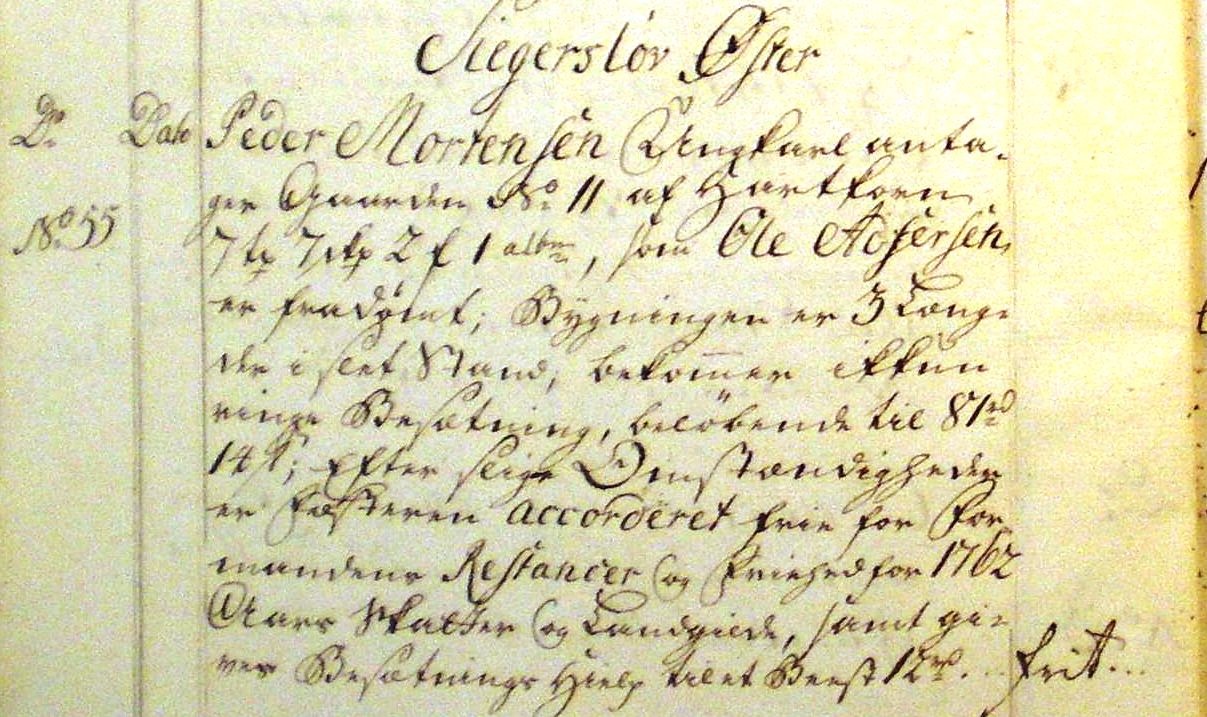 Siegersløv Øster
Do. Dato Peder Mortensen Ungkarl anta-
ger Gaarden No. 11 af Hartkorn
No. 55
7 tp 7 skp 2 f 1 albm, som Ole Adsersen,
er fradømt; Bygningen er 3 Læng-
der i slet Stand, bekom̄er ikkun
ringe Besætning, beløbende til 81 rd
14 s; Efter slige Omstændigheder
er Fæsteren accorderet frie for For-
mandens Restancer og Friehed for 1762
Aars Skatter og Landgilde, samt gi-
ves Besætnings Hielp til et Beest 12 rd. .. frit...